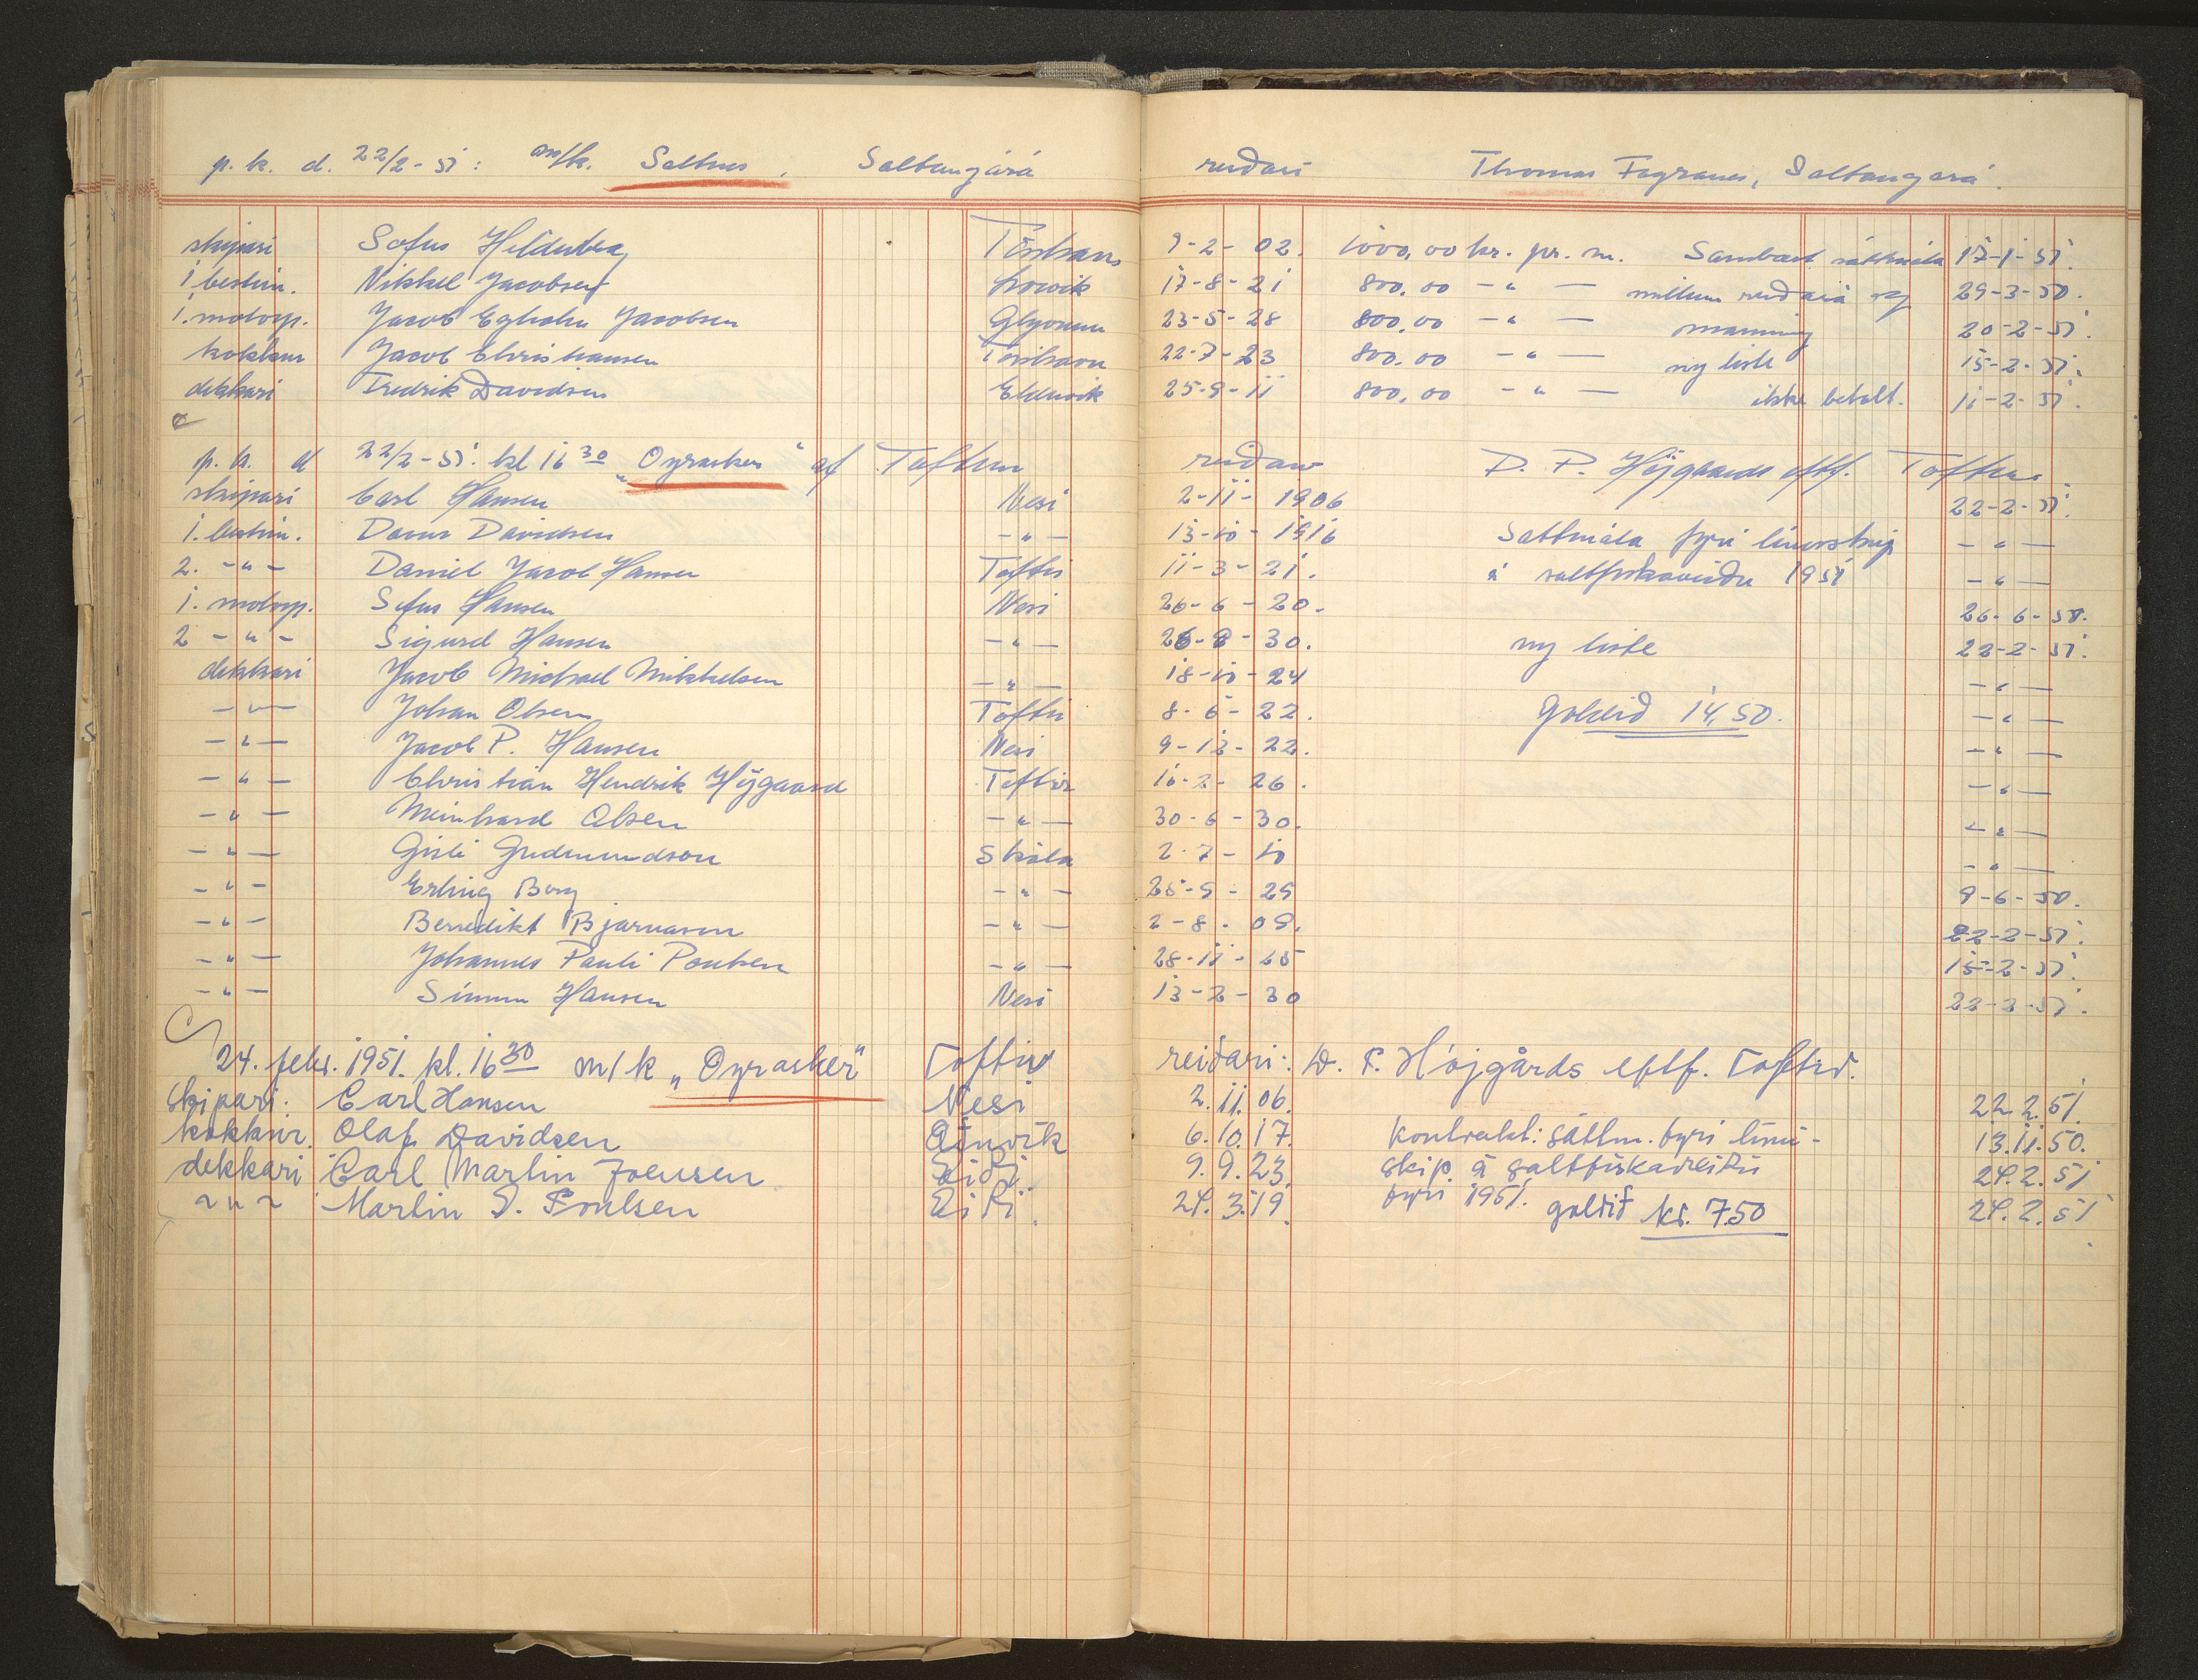 p. k. d. 22/2-51: m/k. Saltnes, Saltangárá reiðari Thomas Fagranes, Saltangará.
skipari Sofus Hellduberg Tórshavn 9-2-02. 1000,00 kr. pr. m. Sambært sáttmála 17-1-51.
1 bestm. Nikkel Jacobsen 17-8-21 800,00 -"- millum reiðara og 29-3-50.
1. motorp. Jacob Egholm Jacobsen 23-5-28 800,00 -"- manning 20-2-51.
kokkur Jacob Christiansen Tórshavn 22-7-23 800,00 -"- ny liste 15-2-51.
dekkari Fredrik Davidsen Elduvik 25-9-11 800,00 -"- ikke betalt. 11-2-51.
p. k. d 22/2-51. kl 16 30 "Oyrasker" af Toftum reiðari D. P. Højgaards eftf. Toftum
skipari Carl Hansen Nesi 2-11-1906 22-2-51.
1. bestm. Davur Davidsen -"- 13-10-1916 Sáttmála fyri línuskip -"-
2. -"- Daniel Jacob Hansen Toftir 11-3-21. á saltfiskaveiðu 1951 -"-
1. motorp. Sofus Hansen Nesi 26-6-20. 26-6-50.
2 -"- Sigurd Hansen -"- 26-8-30. ny liste 22-2-51.
dekkari Jacob Michael Mikkelsen -"- 18-10-24 -"-
-"- Johan Olsen Toftir 8-6-22. Goldið 14,50. -"-
-"- Jacob P. Hansen Nesi 9-12-22. -"-
-"- Christian Hendrik Højgaard Toftir 16-2-26. -"-
-"- Meinhard Olsen -"- 30-6-30. -"-
-"- Gisli Gudmundson Skála 2-7-10 -"-
-"- Erling Berg -"- 25-9-29 9-6-50.
-"- Benedikt Bjarnason -"- 2-8-09. 22-2-51.
-"- Johannes Pauli Poulsen -"- 28-11-25 15-2-51.
-"- Simun Hansen Nesi 13-2-30 22-2-51.
24. febr. 1951. kl. 16 30 m/k "Oyrasker" Toftir reiðari: D. P. Højgårds eftf. Toftir.
Skipari: Carl Hansen Nesi 2.11.06. 22.2.51.
kokkur. Olaf Davidsen 6.10.17. Kontrakt: sáttm. fyri línu- 13.11.50.
dekkari Carl Martin Joensen Eiði 9.9.23. skip á saltfiskaveiðu 24.2.51
-"- Martin S. Poulsen Eiði. 24.3.19. fyri 1951. goldið kr. 7.50 24.2.51